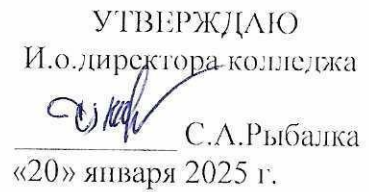 УТВЕРЖДАЮ
И.о.директора колледжа
С.А.Рыбалка
«20» января 2025 г.